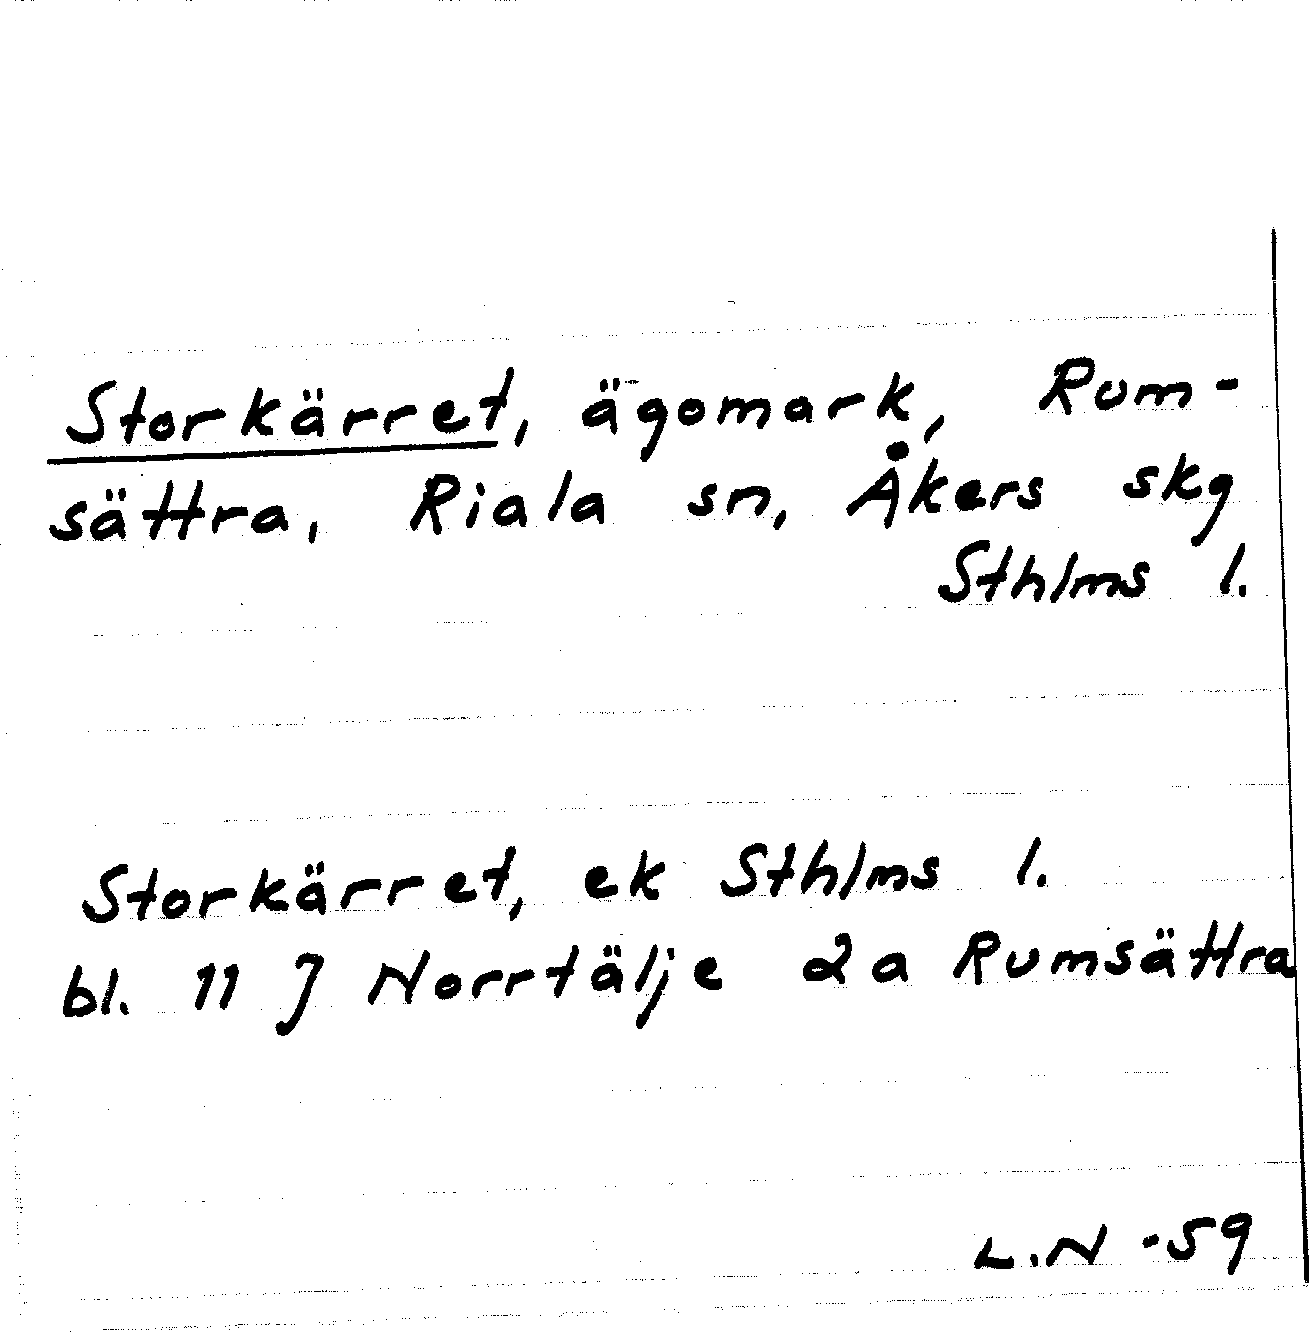 Storkärret, ägomark, Rum-
sättra, Riala sn, Åkers skg
Sthlms l.
Storkärret, ek Sthlms l.
bl. 11 J Norrtälje 2a Rumsättra
L.N -59